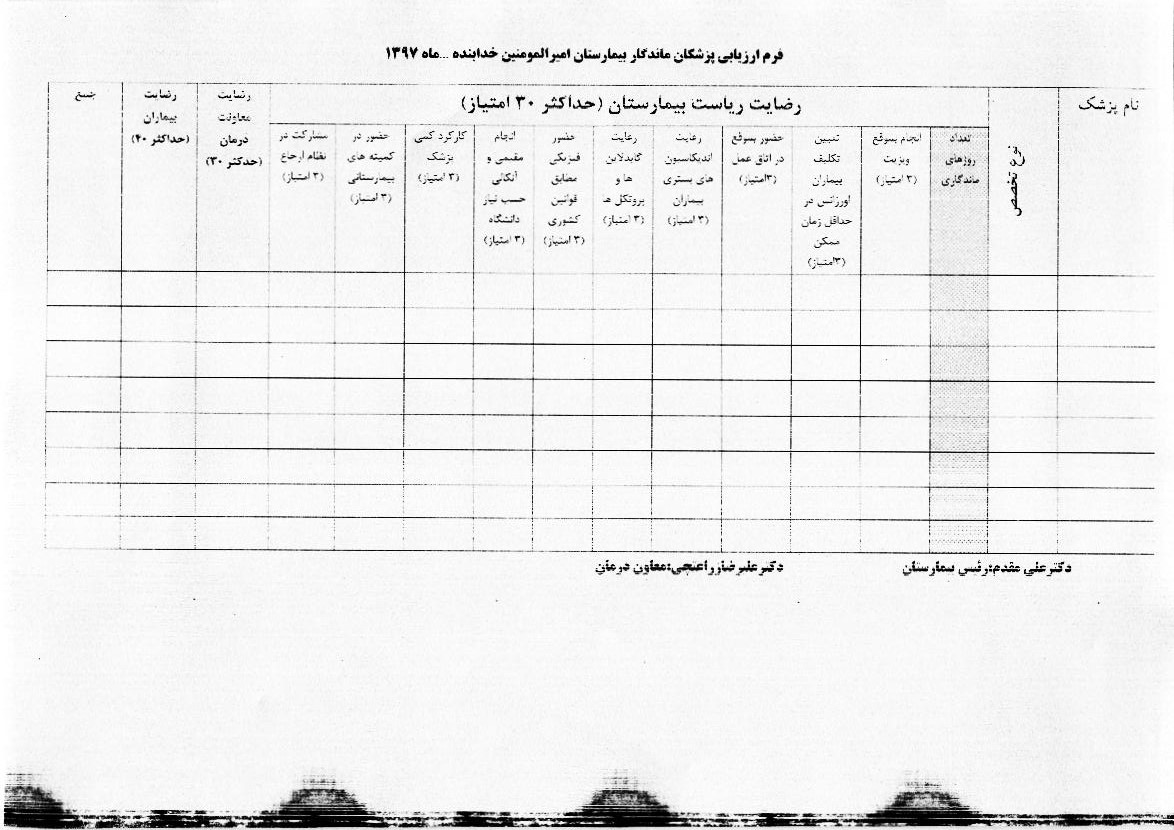 فرم ارزیابی پزشکان ماندگار بیمارستان امیرالمومنین خدابنده ...ماه ۱۳۹۷
نام پزشک
نوع تخصص
رضایت ریاست بیمارستان (حداکثر ۳۰ امتیاز)
تعداد
روزهای
ماندگاری
انجام بموقع
ویزیت
(۳ امتیاز)
تعیین
تکلیف
بیماران
اورژانس در
حداقل زمان
ممکن
(۳امتیاز)
حضور بموقع
در اتاق عمل
(۳امتیاز)
رعایت
اندیکاسیون
های بستری
بیماران
(۳ امتیاز)
رعایت
گایدلاین
ها و
پروتکل ها
(۳ امتیاز)
حضور
فیزیکی
مطابق
قوانین
کشوری
(۳ امتیاز)
انجام
مقیمی و
آنکالی
حسب نیاز
دانشگاه
(۳ امتیاز)
کارکرد کمی
پزشک
(۳ امتیاز)
حضور در
کمیته های
بیمارستانی
(۳ امتیاز)
مشارکت در
نظام ارجاع
(۳ امتیاز)
رضایت
معاونت
درمان
(حدکثر ۳۰)
رضایت
بیماران
(حداکثر ۴۰)
جمع
دکترعلی مقدم:رئیس بیمارستان
دکترعلیرضازراعتچی:معاون درمان